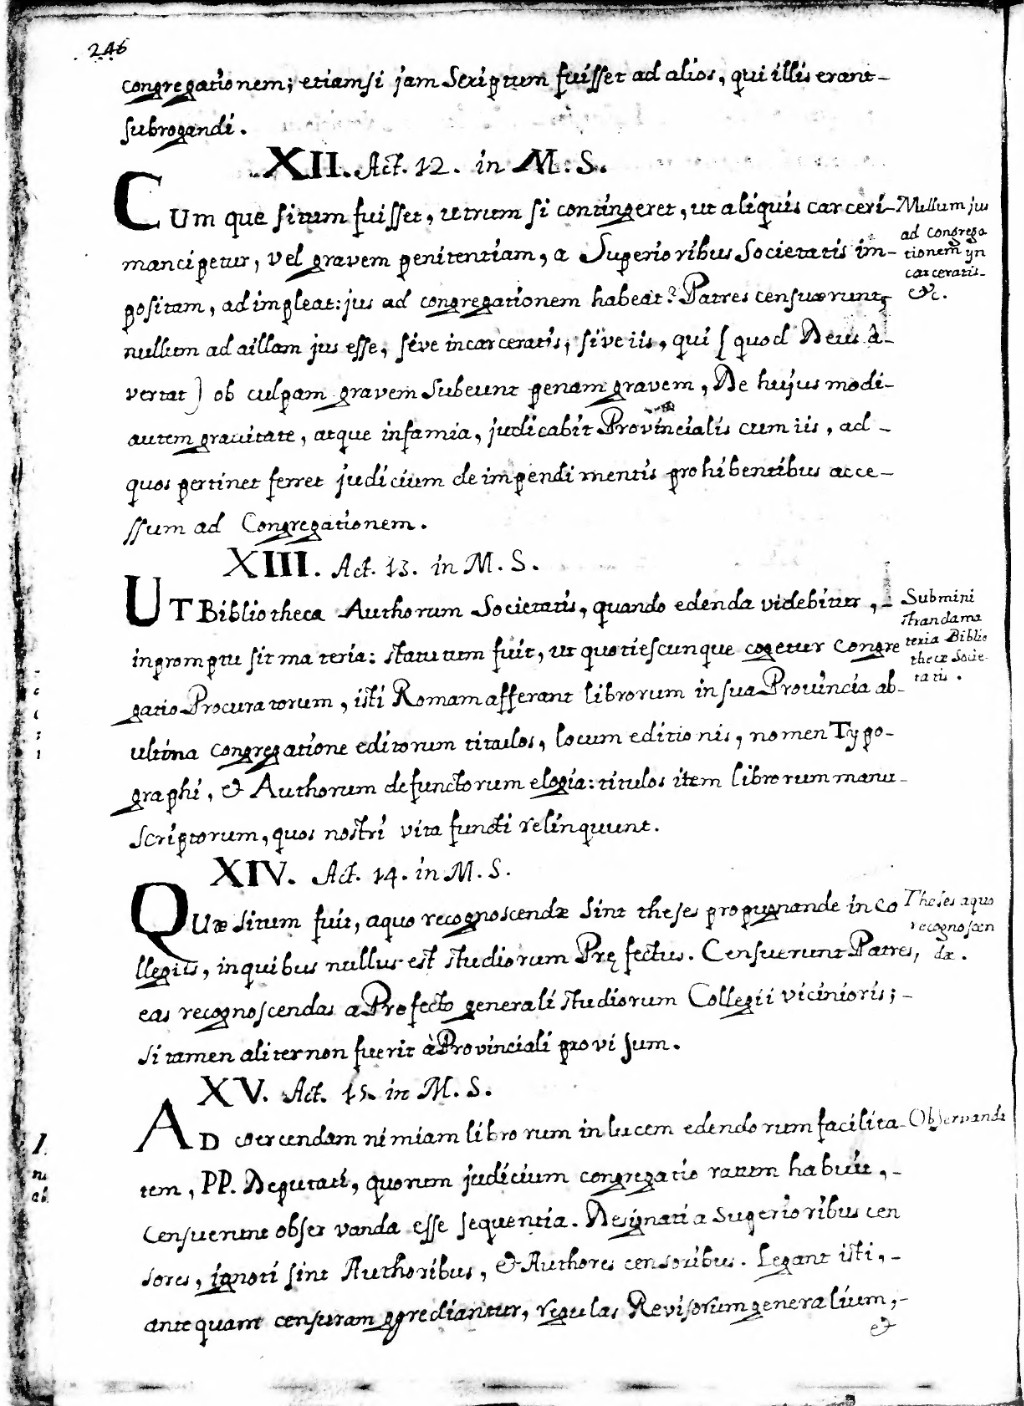 246
congregationem; etiamsi jam Scriptum fuisset ad alios, qui illis erant-
subrogandi.
XII. Act. 12. in M: S.
CUm que situm fuisset, utrum si contingeret, ut aliquis carceri-
mancipetur, vel gravem penitentiam, a Superioribus Societatis im-
positam, adimpleat: jus ad congregationem habeat? Patres censuerunt,
nullum ad aillam jus esse, sive incarceratis, sive iis, qui ( quod Deus à-
vertat ) ob culpam gravem Subeunt penam gravem, De hujus modi-
autem gravitate, atque infamia, judicabit Provincialis cum iis, ad-
quos pertinet ferret judicium de impendimentis prohibentibus acce-
ssum ad Congregationem.
Nullum jus
ad Congrega
tionem yn
carceratis-
&c.
XIII. Act. 13. in M. S.
UT Bibliotheca Authorum Societatis, quando edenda videbitur,-
inpromptu sit materia: statutum fuit, ut quotiescunque cogetur Congre
gatio Procuratorum, isti Romam afferant librorum in sua Provincia ab-
ultima congregatione editorum titulos, locum editionis, nomen Typo-
graphi, & Authorum defunctorum elogia: titulos item librorum manu-
scriptorum, quos nostri vita functi relinquunt.
Submini
stranda ma
teria Biblio
thecæ Socie-
tatis.
XIV. Act. 14. in M. S.
QUæsitum fuit, aquo recognoscendæ sint theses propugnande in Co
llegiis, in quibus nullus est studiorum Prefectus. Censuerunt Patres,
eas recognoscendas a Profecto generali studiorum Collegii vicinioris;-
Si tamen aliter non fuerit à Provinciali provisum.
Theses aquo
recognoscen
dæ.
XV. Act. 15. in M. S.
AD coercendam nimiam librorum in lucem edendorum facilita-
tem, PP. Deputati, quorum judicium congregatio ratum habuit,-
Censuerunt observanda esse sequentia. Designati a Superioribus cen
sores, ignoti sint Authoribus, & Authores censoribus. Legant isti,-
antequam censuram ggrediantur, regulas Revisorum generalium,-
&
Observanda